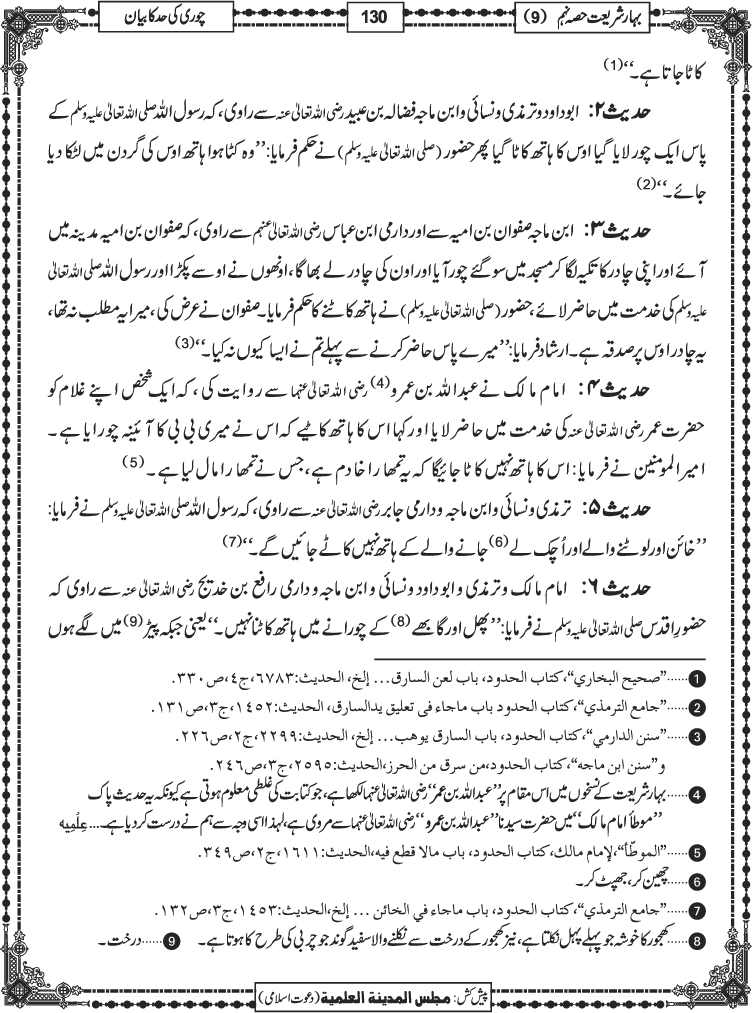 بہار شریعت حصہ نہم (9)
130
چوری کی حد کا بیان
کاٹا جاتا ہے۔‘‘(1)
حدیث ۲: ابوداود و ترمذی و نسائی و ابن ماجہ فضالہ بن عبید رضی اللہ تعالیٰ عنہ سے راوی، کہ رسول اللہ صلی اللہ تعالیٰ علیہ وسلم کے
پاس ایک چور لایا گیا اوس کا ہاتھ کاٹا گیا پھر حضور (صلی اللہ تعالیٰ علیہ وسلم) نے حکم فرمایا:’’وہ کٹا ہوا ہاتھ اوس کی گردن میں لٹکا دیا
جائے۔‘‘(2)
حدیث ۳: ابن ماجہ صفوان بن امیہ سے اور دارمی ابن عباس رضی اللہ تعالیٰ عنہم سے راوی، کہ صفوان بن امیہ مدینہ میں
آئے اور اپنی چادر کا تکیہ لگا کر مسجد میں سو گئے چور آیا اور اون کی چادر لے بھاگا، اونھوں نے اوسے پکڑا اور رسول اللہ صلی اللہ تعالیٰ
علیہ وسلم کی خدمت میں حاضر لائے، حضور (صلی اللہ تعالیٰ علیہ وسلم) نے ہاتھ کاٹنے کا حکم فرمایا۔ صفوان نے عرض کی، میرا یہ مطلب نہ تھا،
یہ چادر اوس پر صدقہ ہے۔ ارشاد فرمایا:’’میرے پاس حاضر کرنے سے پہلے تم نے ایسا کیوں نہ کیا۔‘‘(3)
حدیث ۴: امام مالک نے عبداللہ بن عمرو(4) رضی اللہ تعالیٰ عنہما سے روایت کی، کہ ایک شخص اپنے غلام کو
حضرت عمر رضی اللہ تعالیٰ عنہ کی خدمت میں حاضر لایا اور کہا اس کا ہاتھ کاٹیے کہ اس نے میری بی بی کا آئینہ چورایا ہے۔
امیر المومنین نے فرمایا: اس کا ہاتھ نہیں کاٹا جائیگا کہ یہ تمھارا خادم ہے، جس نے تمھارا مال لیا ہے۔(5)
حدیث ۵: ترمذی و نسائی و ابن ماجہ و دارمی جابر رضی اللہ تعالیٰ عنہ سے راوی، کہ رسول اللہ صلی اللہ تعالیٰ علیہ وسلم نے فرمایا:
’’خائن اور لوٹنے والے اور اُچک لے(6) جانے والے کے ہاتھ نہیں کاٹے جائیں گے۔‘‘(7)
حدیث ۶: امام مالک و ترمذی و ابوداود و نسائی و ابن ماجہ و دارمی رافع بن خدیج رضی اللہ تعالیٰ عنہ سے راوی کہ
حضورِ اقدس صلی اللہ تعالیٰ علیہ وسلم نے فرمایا:’’پھل اور گابھے(8) کے چورانے میں ہاتھ کاٹنا نہیں۔‘‘ یعنی جبکہ پیڑ(9) میں لگے ہوں
1 ......”صحيح البخاري“، كتاب الحدود، باب لعن السارق... إلخ، الحديث:٦٧٨٣، ج٤، ص٣٣٠.
2 ......”جامع الترمذي“، كتاب الحدود باب ماجاء فى تعليق يدالسارق، الحديث:١٤٥٢، ج٣، ص١٣١.
3 ......”سنن الدارمي“، كتاب الحدود، باب السارق يوهب... إلخ، الحديث:٢٢٩٩، ج٢، ص٢٢٦.
و”سنن ابن ماجه“، كتاب الحدود، من سرق من الحرز، الحديث:٢٥٩٥، ج٣، ص٢٤٦.
4 ......بہار شریعت کے نسخوں میں اس مقام پر ’’عبداللہ بن عمر‘‘ رضی اللہ تعالیٰ عنہما لکھا ہے، جو کتابت کی غلطی معلوم ہوتی ہے کیونکہ یہ حدیث پاک
’’موطأ امام مالک‘‘ میں حضرت سیدنا ’’عبداللہ بن عمرو‘‘ رضی اللہ تعالیٰ عنہما سے مروی ہے، لہٰذا اسی وجہ سے ہم نے درست کر دیا ہے۔... عِلْمِیه
5 ......”الموطّأ“، لإمام مالك، كتاب الحدود، باب مالا قطع فيه، الحديث:١٦١١، ج٢، ص٣٤٩.
6 ......چھین کر، جھپٹ کر۔
7 ......”جامع الترمذي“، كتاب الحدود، باب ماجاء في الخائن ... إلخ، الحديث:١٤٥٣، ج٣، ص١٣٢.
8 ......کھجور کا خوشہ جو پہلے پہل نکلتا ہے، نیز کھجور کے درخت سے نکلنے والا سفید گوند جو چربی کی طرح کا ہوتا ہے۔ 9 ......درخت۔
پیش کش: مجلس المدینة العلمیة (دعوت اسلامی)